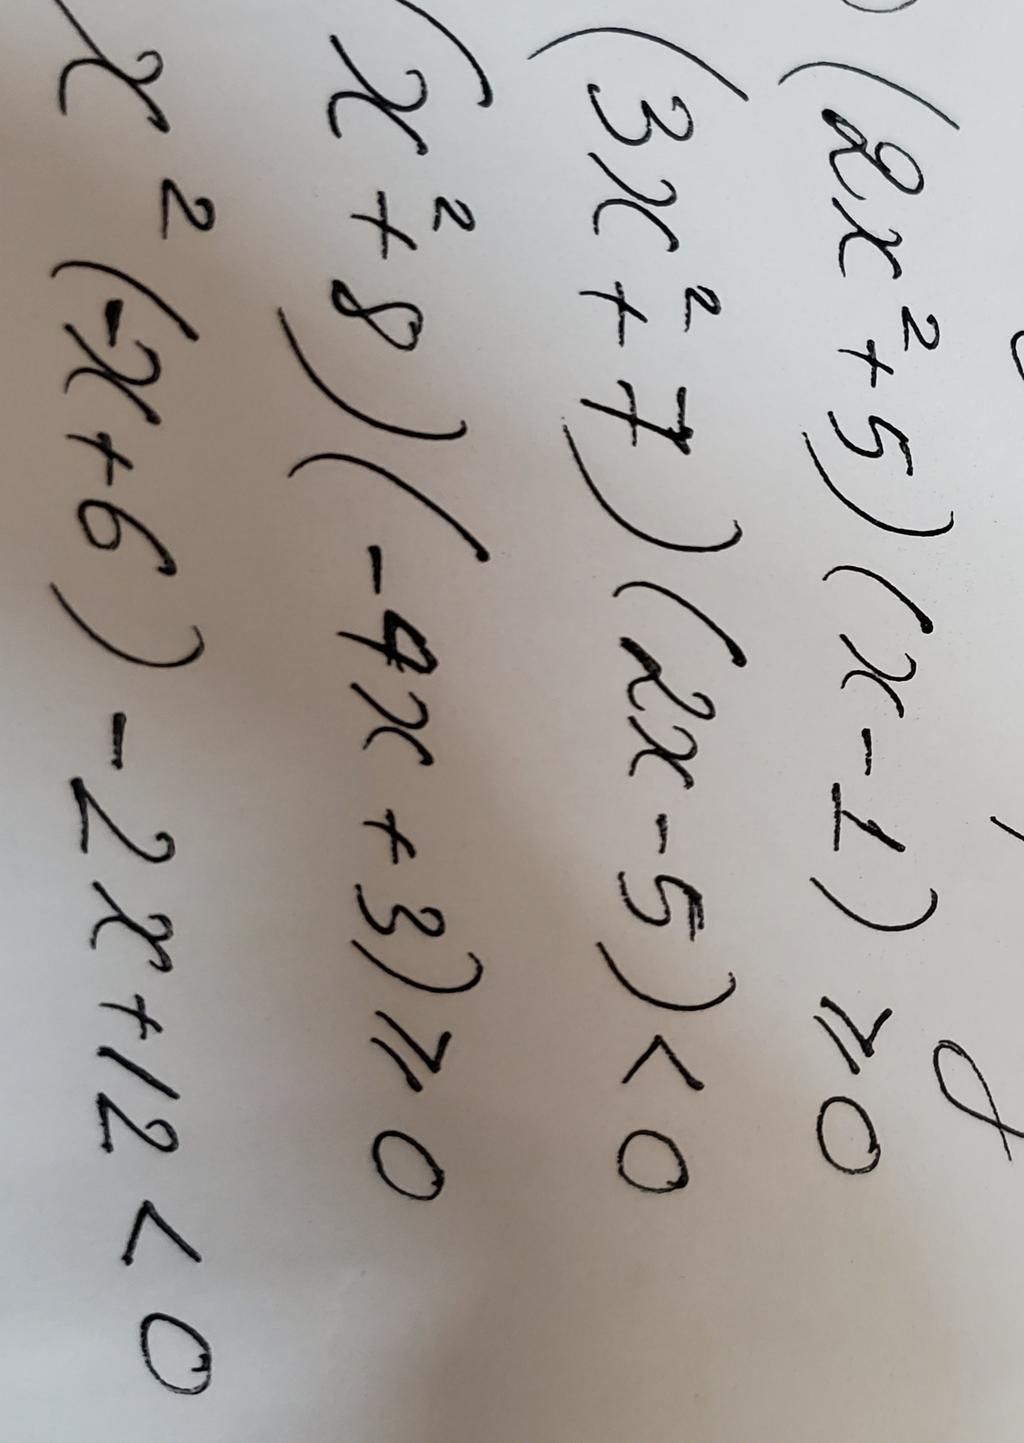 (2x²+5)(x-1)⩾0
(3x²+7)(2x-5)<0
(x²+8)(-4x+3)⩾0
x²(-x+6)-2x+12<0